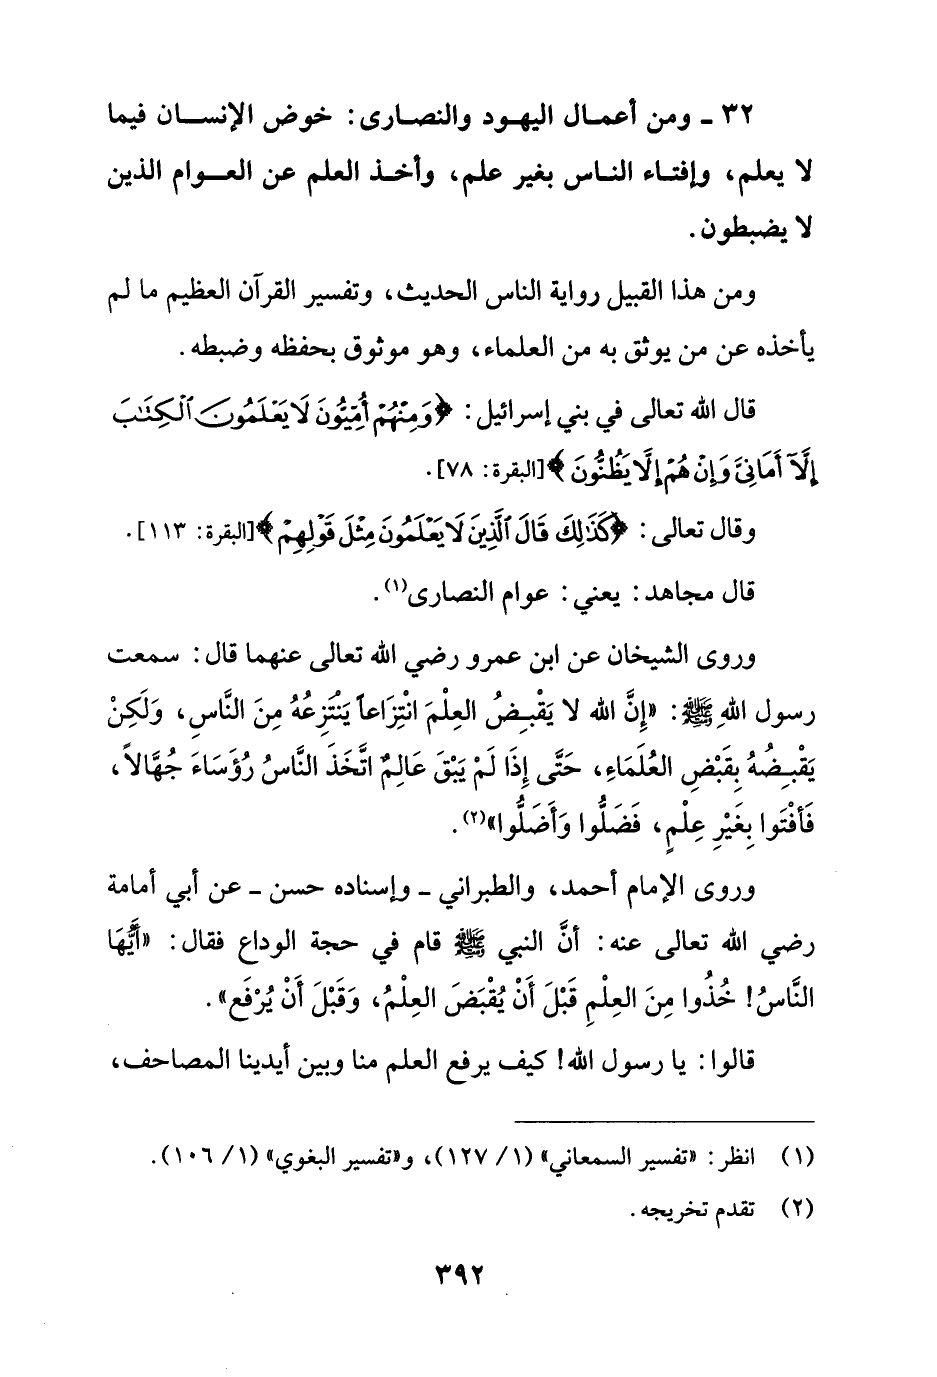 ٣٢ ـ ومن أعمال اليهود والنصارى: خوض الإنسان فيما
لا يعلم، وإفتاء الناس بغير علم، وأخذ العلم عن العوام الذين
لا يضبطون.
ومن هذا القبيل رواية الناس الحديث، وتفسير القرآن العظيم ما لم
يأخذه عن من يوثق به من العلماء، وهو موثوق بحفظه وضبطه.
قال الله تعالى في بني إسرائيل: ﴿وَمِنْهُمْ أُمِّيُّونَ لَا يَعْلَمُونَ ٱلْكِتَٰبَ
إِلَّآ أَمَانِىَّ وَإِنْ هُمْ إِلَّا يَظُنُّونَ﴾[البقرة: ٧٨].
وقال تعالى: ﴿كَذَٰلِكَ قَالَ ٱلَّذِينَ لَا يَعْلَمُونَ مِثْلَ قَوْلِهِمْ﴾[البقرة: ١١٣].
قال مجاهد: يعني: عوام النصارى(١).
وروى الشيخان عن ابن عمرو رضي الله تعالى عنهما قال: سمعت
رسول اللهِ ﷺ: «إِنَّ الله لا يَقْبِضُ العِلْمَ انْتِزَاعاً يَنْتَزِعُهُ مِنَ النَّاسِ، وَلَكِنْ
يَقْبِضُهُ بِقَبْضِ العُلَمَاءِ، حَتَّى إِذَا لَمْ يَبْقَ عَالِمٌ اتَّخَذَ النَّاسُ رُؤَسَاءَ جُهَّالاً،
فَأَفْتَوا بِغَيْرِ عِلْمٍ، فَضَلُّوا وَأَضَلُّوا»(٢).
وروى الإمام أحمد، والطبراني ـ وإسناده حسن ـ عن أبي أمامة
رضي الله تعالى عنه: أنَّ النبي ﷺ قام في حجة الوداع فقال: «أَيُّهَا
النَّاسُ! خُذُوا مِنَ العِلْمِ قَبْلَ أَنْ يُقْبَضَ العِلْمُ، وَقَبْلَ أَنْ يُرْفَع».
قالوا: يا رسول الله! كيف يرفع العلم منا وبين أيدينا المصاحف،
(١) انظر: «تفسير السمعاني» (١/ ١٢٧)، و«تفسير البغوي» (١/ ١٠٦).
(٢) تقدم تخريجه.
٣٩٢